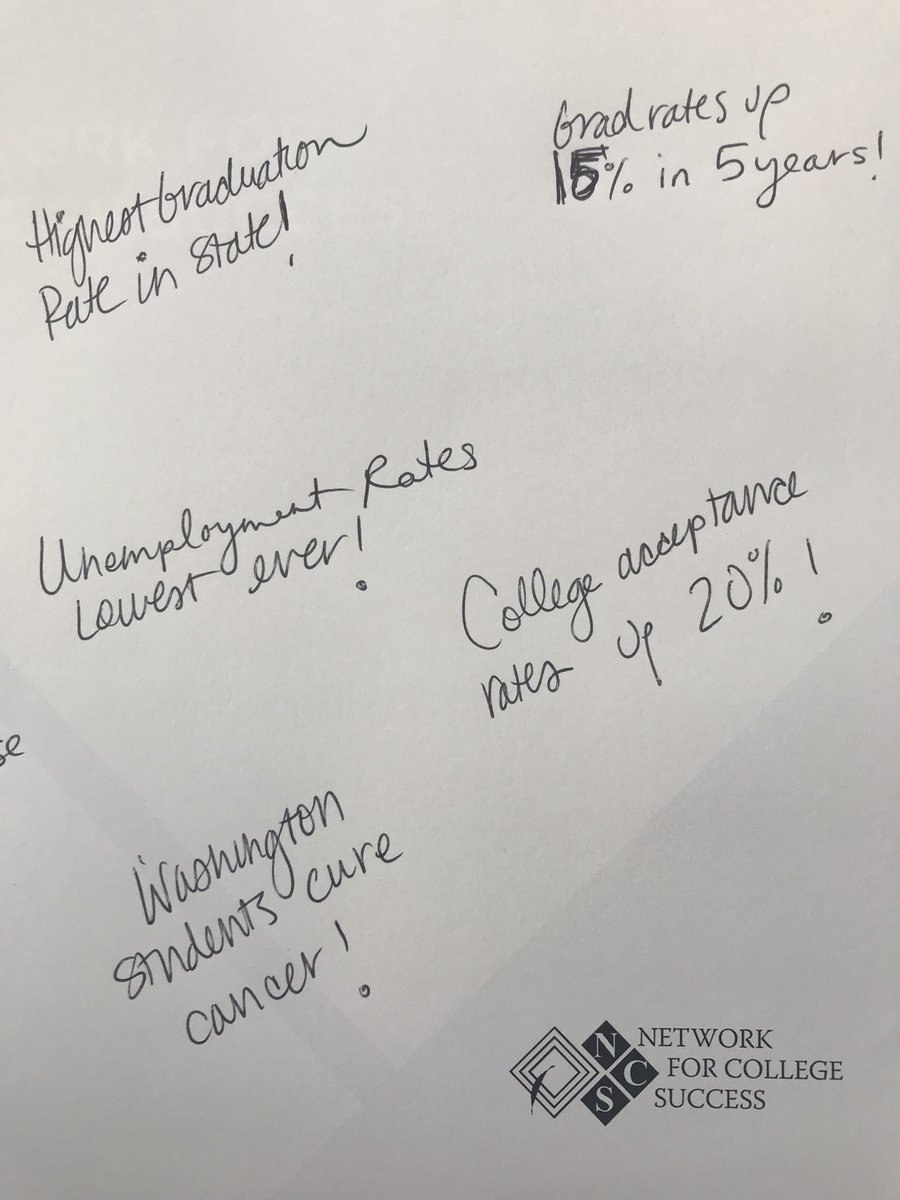 Highest Graduation
Rate in State!
Grad rates up
15% in 5 years!
Unemployment Rates
Lowest ever!
College acceptance
rates up 20%!
se
Washington
students cure
cancer!
N
C
S
NETWORK
FOR COLLEGE
SUCCESS